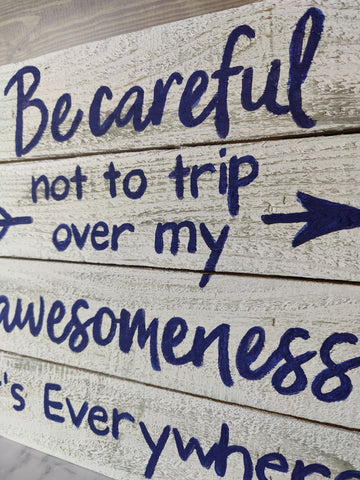 Be careful
not to trip
over my
awesomeness
's Everywhere